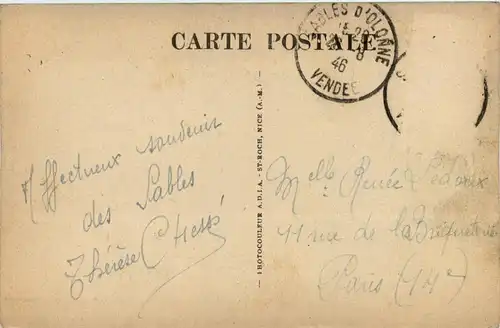 CARTE POSTALE
SABLES D'OLONNE
8
46
VENDEE
Affectueux souvenir
des Sables
Thérèse Chessé
PHOTOCOULEUR A.D.I.A. - ST-ROCH, NICE (A.-M.)
Melle Renée
11 rue de la Briqueterie
Paris (14e)